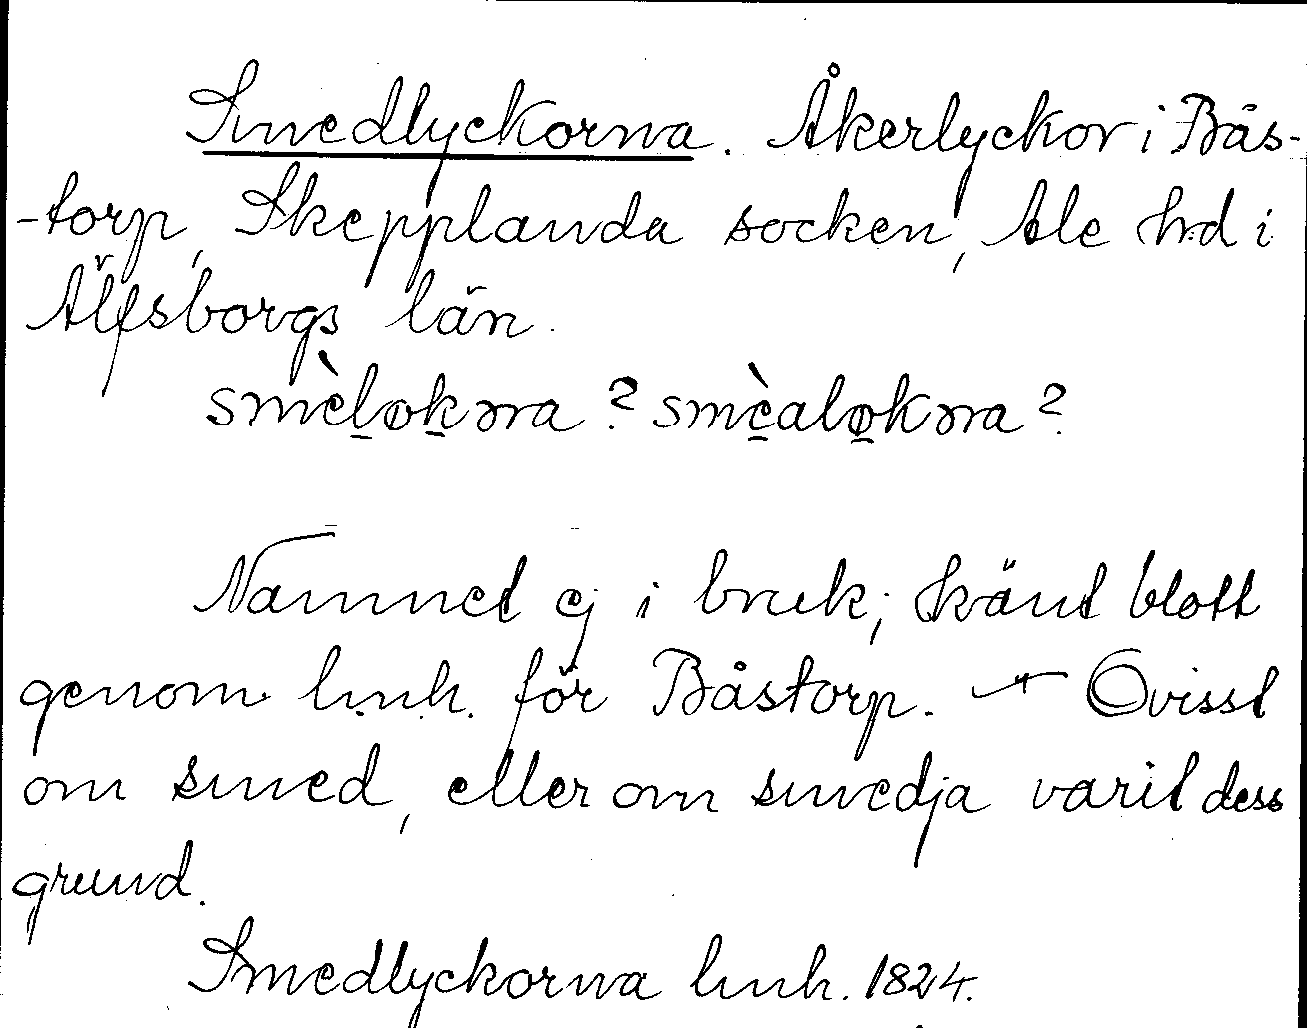 Smedlyckorna. Åkerlyckor i Bås-
-torp, Skepplanda socken, Ale hd i
Älfsborgs län.
smèløkɔrna? smèaløkɔrna?
Namnet ej i bruk; känt blott
genom lmh. för Båstorp. — Ovisst
om smed, eller om smedja varit dess
grund.
Smedlyckorna lmh. 1824.